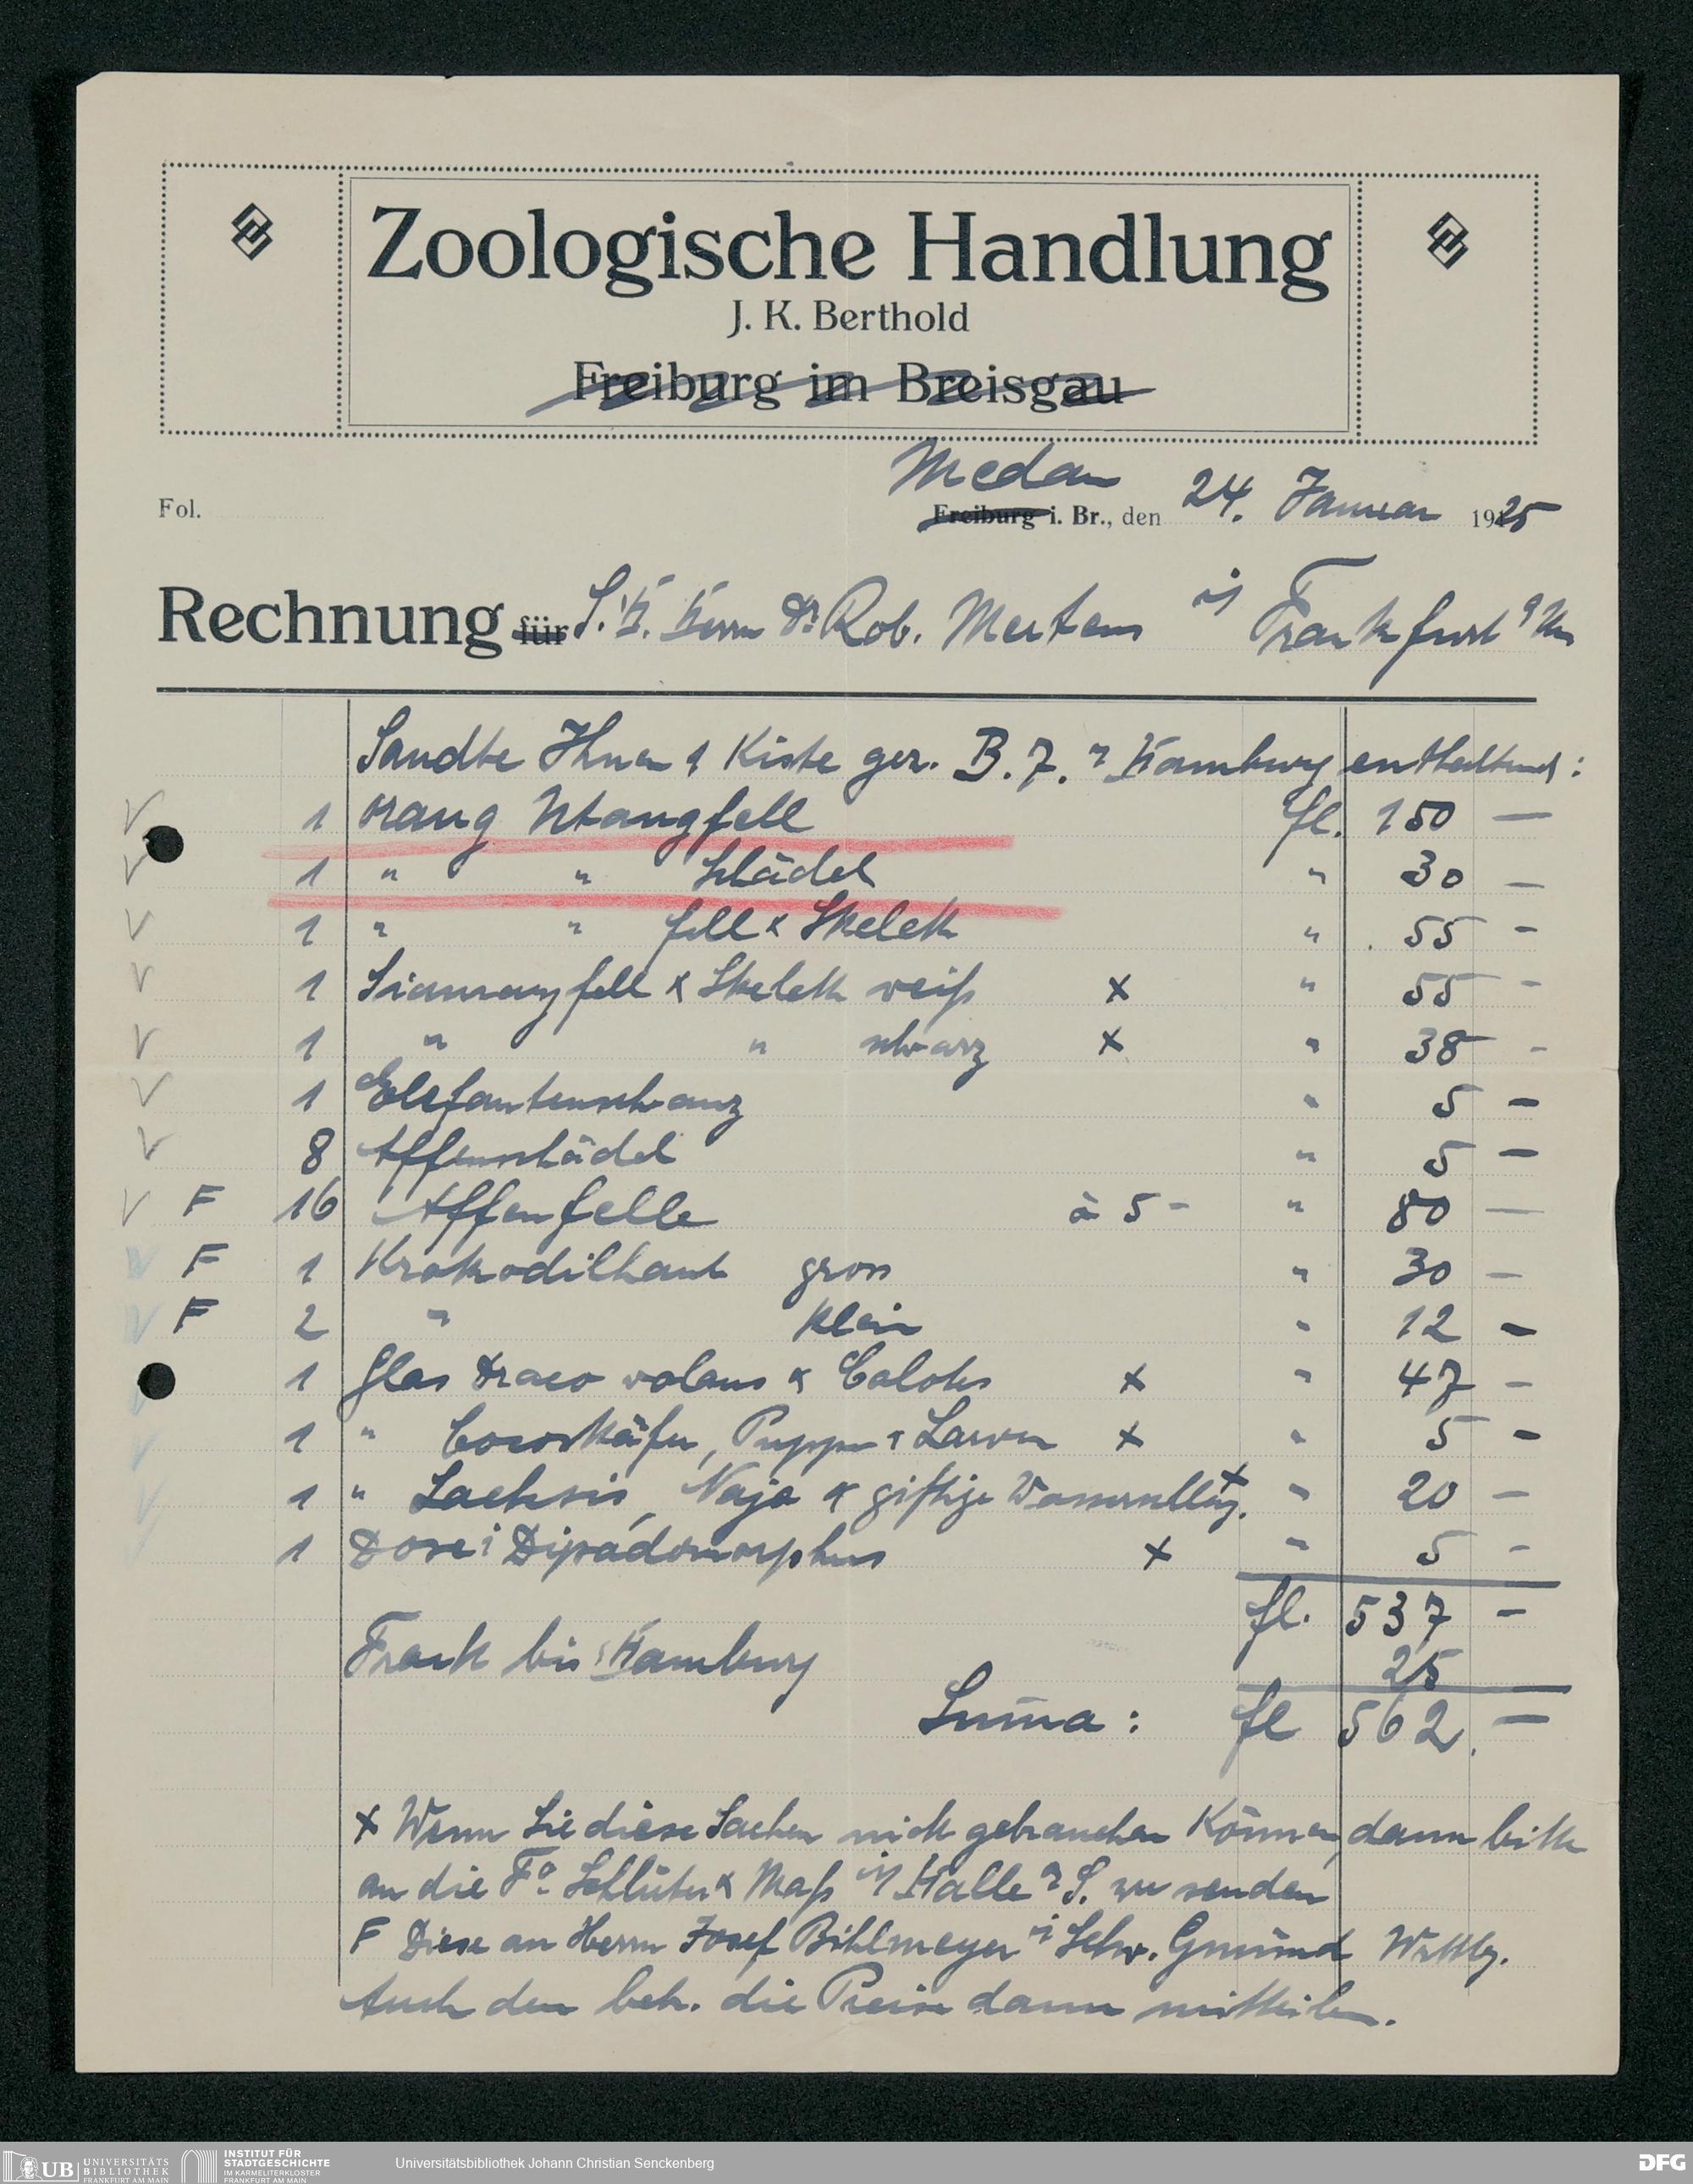 Zoologische Handlung
J. K. Berthold
Freiburg im Breisgau
Medan
Fol.
Freiburg i. Br., den 24. Januar 1925
Rechnung für S. H. Herrn Dr. Rob. Mertens in Frankfurt a/M
Sandte Ihnen 1 Kiste gez. B. 7. n Hamburg enthaltend:
1 Orang Utangfell fl. 150 —
1 " " Schädel " 30 —
1 " " fell & Skelett " 55 -
1 Siamangfell & Skelett weiß x " 55 -
1 " " schwarz x " 38 -
1 Elefantenschwanz " 5 -
8 Affenschädel " 5 -
F 16 Affenfelle à 5 - " 80 —
F 1 Krokodilhaut gross " 30 -
F 2 " klein " 12 -
1 Glas Draco volans & Calotes x " 47 -
1 " Cocoskäfer, Puppe & Larven x " 5 -
1 " Lachsis, Naja & giftige Wasserschlg. x " 20 -
1 Dose: Dipsadomorphus x " 5 -
fl. 537 -
Fracht bis Hamburg 25
Suma: fl 562. —
x Wenn Sie diese Sachen nicht gebrauchen können, dann bitte
an die Fa. Schlüter & Maß in Halle a S. zu senden
F Diese an Herrn Josef Bihlmeyer i Schw. Gmünd Wttbg.
Auch den betr. die Preise dann mitteilen.
UB UNIVERSITÄTS
BIBLIOTHEK
FRANKFURT AM MAIN
INSTITUT FÜR
STADTGESCHICHTE
IM KARMELITERKLOSTER
FRANKFURT AM MAIN
Universitätsbibliothek Johann Christian Senckenberg
DFG